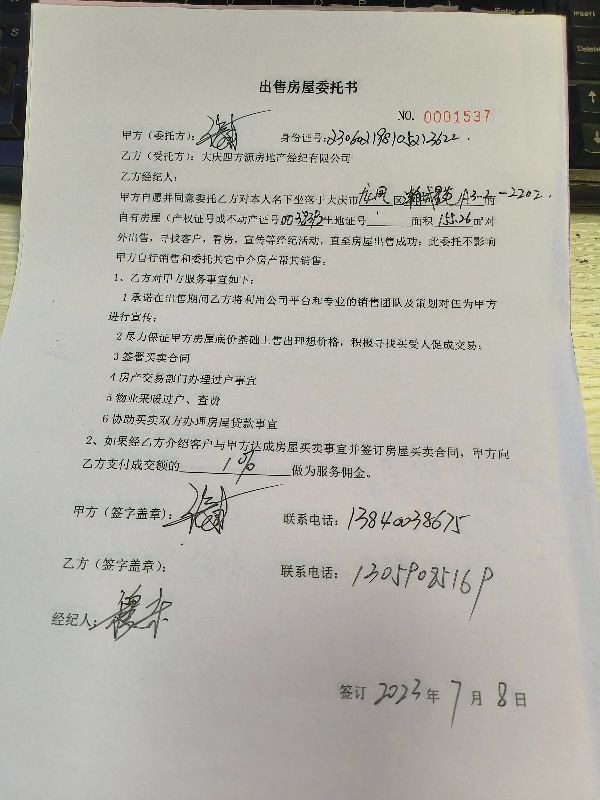 出售房屋委托书
NO. 0001537
甲方（委托方）： 身份证号：230602198105213622
乙方（受托方）：大庆四方源房地产经纪有限公司
乙方经纪人：
甲方自愿并同意委托乙方对本人名下坐落于大庆市 区 A3-2-2202 的
自有房屋（产权证号或不动产证号 土地证号 面积 155.26 m²对
外出售，寻找客户，看房，宣传等经纪活动，直至房屋出售成功，此委托不影响
甲方自行销售和委托其它中介房产帮其销售。
1、乙方对甲方服务事宜如下：
1 承诺在出售期间乙方将利用公司平台和专业的销售团队及策划对伍为甲方
进行宣传；
2 尽力保证甲方房屋底价基础上售出理想价格，积极寻找买受人促成交易；
3 签署买卖合同
4 房产交易部门办理过户事宜
5 物业采暖过户、查费
6 协助买卖双方办理房屋贷款事宜
2、如果经乙方介绍客户与甲方达成房屋买卖事宜并签订房屋买卖合同，甲方向
乙方支付成交额的 1% 做为服务佣金。
甲方（签字盖章）： 联系电话：13840038675
乙方（签字盖章）： 联系电话：13059085169
经纪人：
签订 2023 年 7 月 8 日